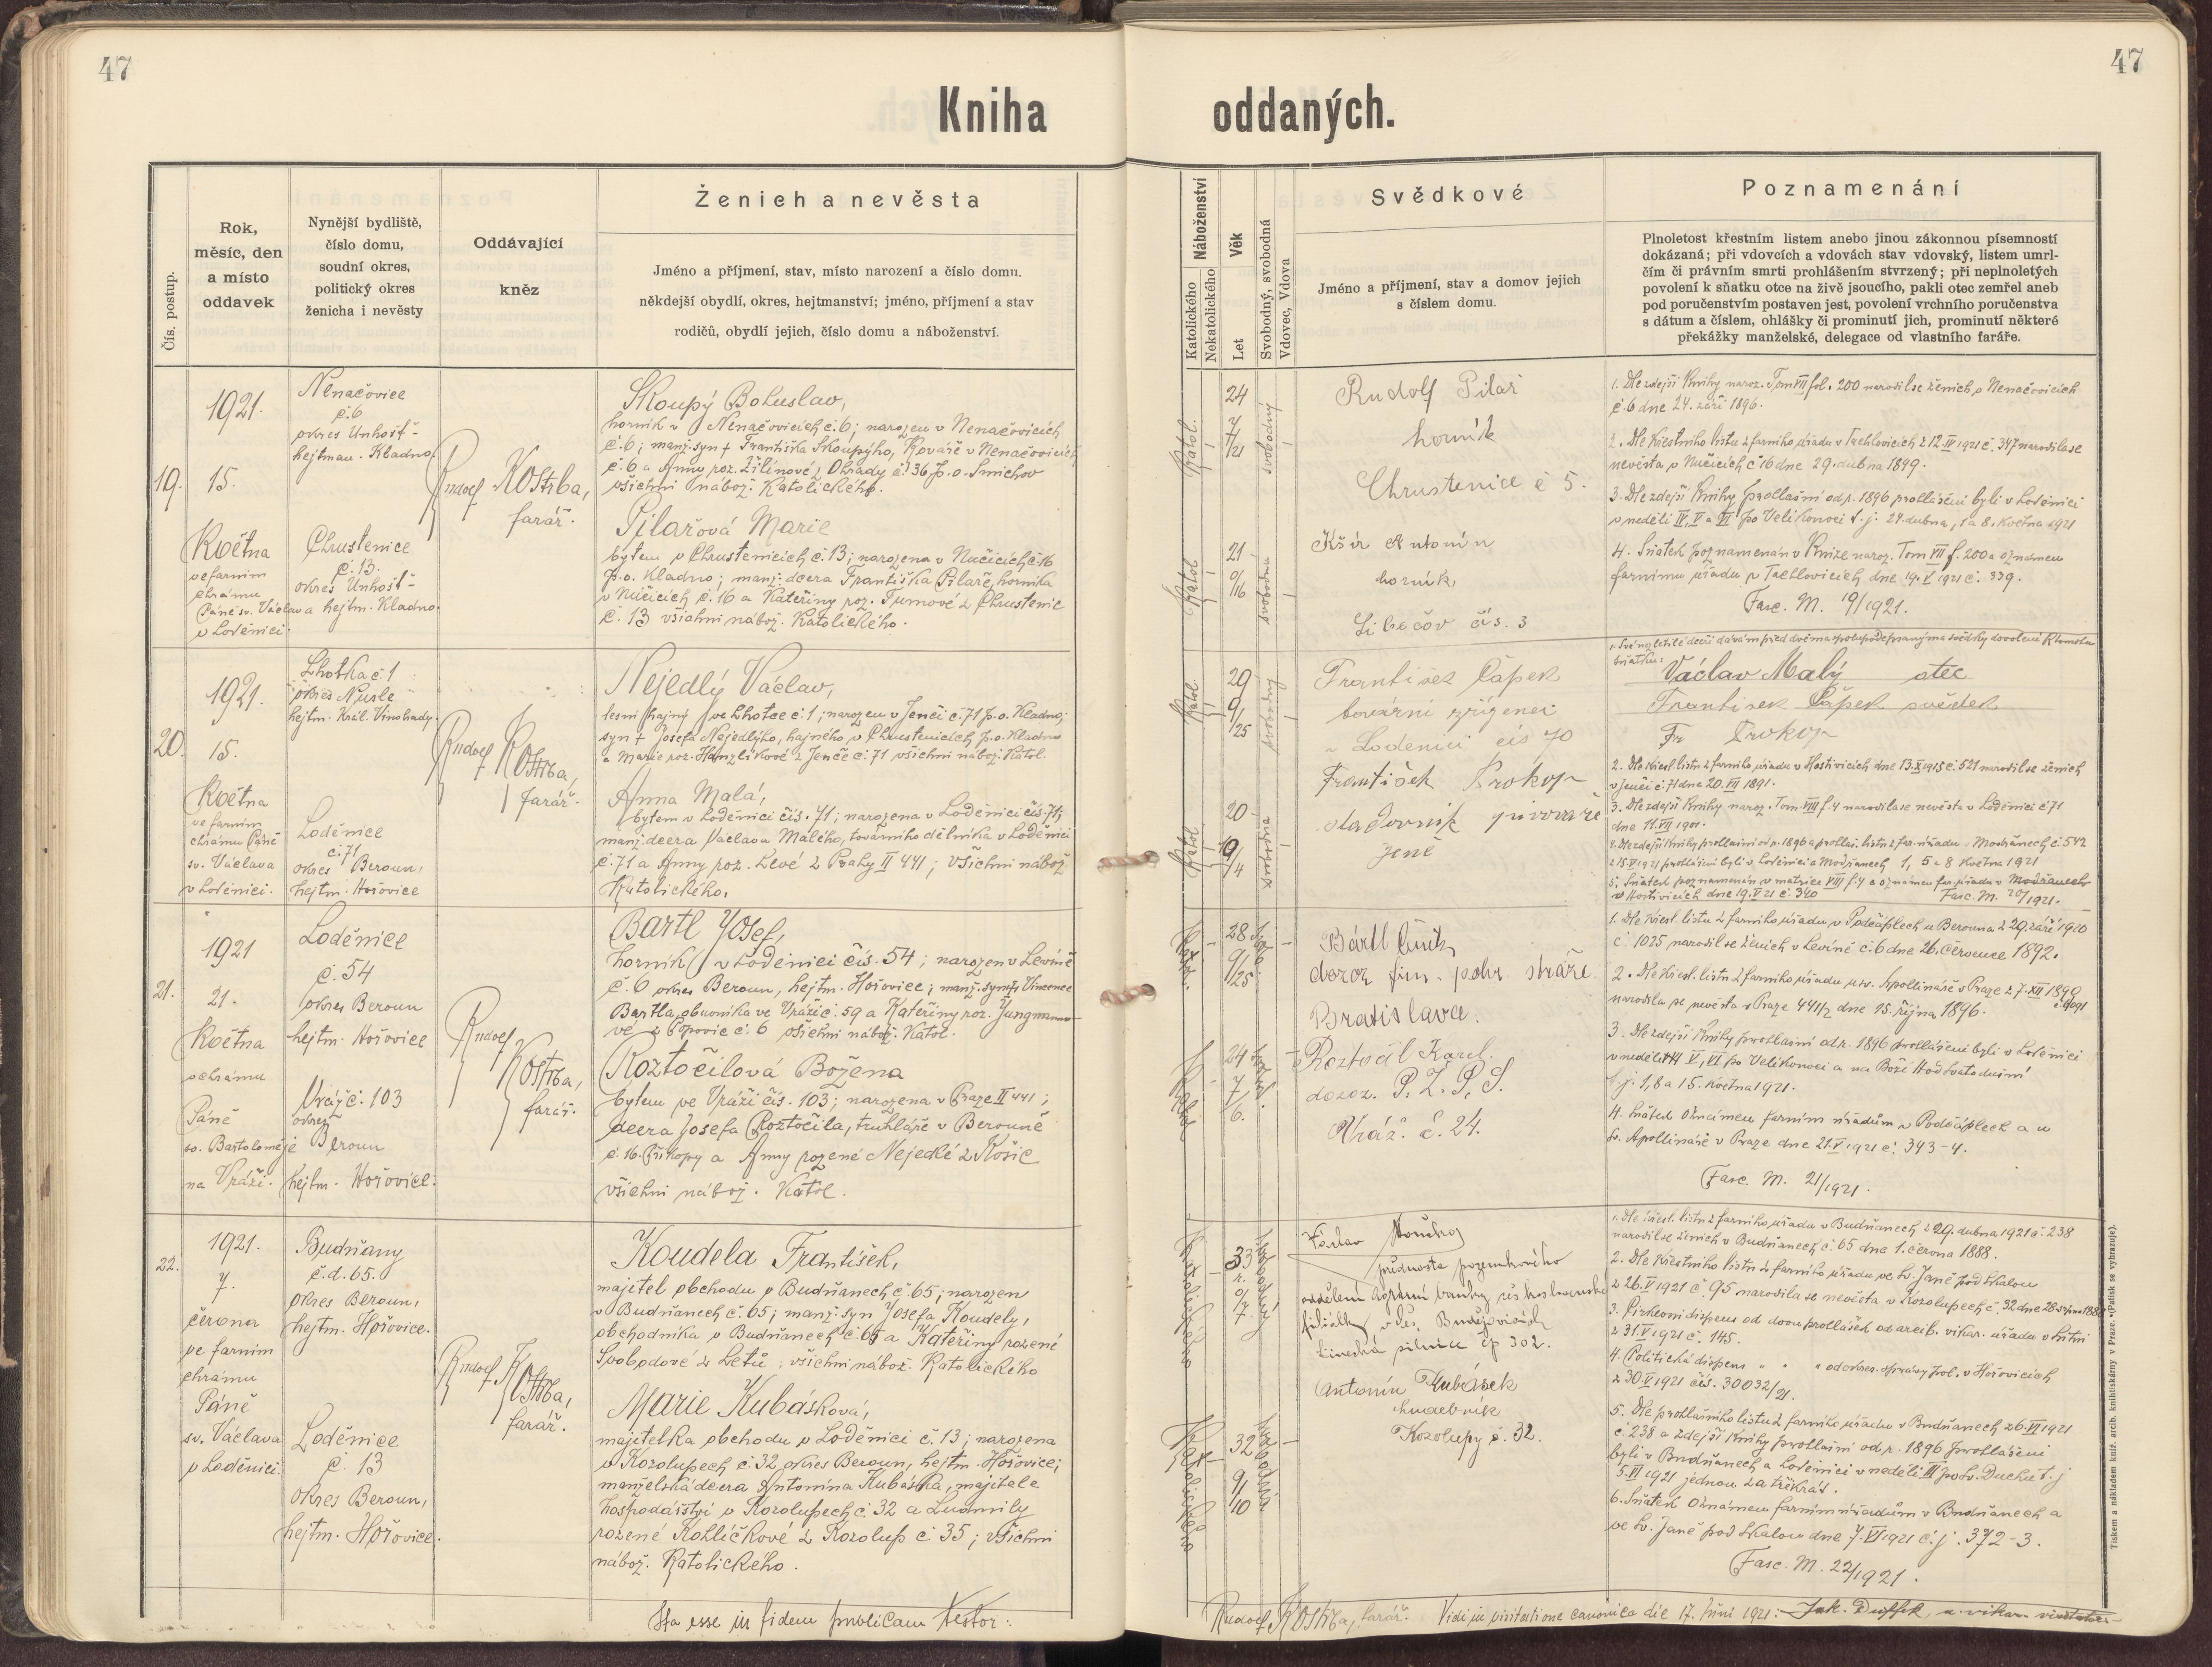 47
47
Kniha
oddaných.
Čís. postup.
Rok,
měsíc, den
a místo
oddavek
Nynější bydliště,
číslo domu,
soudní okres,
politický okres
ženicha i nevěsty
Oddávající
kněz
Ženich a nevěsta
Jméno a příjmení, stav, místo narození a číslo domu.
někdejší obydlí, okres, hejtmanství; jméno, příjmení a stav
rodičů, obydlí jejich, číslo domu a náboženství.
Náboženství
Katolického
Nekatolického
Věk
Let
Svobodný, svobodná
Vdovec, Vdova
Svědkové
Jméno a příjmení, stav a domov jejich
s číslem domu.
Poznamenání
Plnoletost křestním listem anebo jinou zákonnou písemností
dokázaná; při vdovcích a vdovách stav vdovský, listem umrl-
čím či právním smrti prohlášením stvrzený; při neplnoletých
povolení k sňatku otce na živě jsoucího, pakli otec zemřel aneb
pod poručenstvím postaven jest, povolení vrchního poručenstva
s dátum a číslem, ohlášky či prominutí jich, prominutí některé
překážky manželské, delegace od vlastního faráře.
19.
1921.
15.
Května
ve farním
chrámu
Páně sv. Václava
v Loděnici.
Nenačovice
č. 6
okres Unhošť-
hejtman. Kladno.
Chrustenice
č. 13.
okres Unhošť-
hejtm. Kladno.
Rudolf Kostrba,
farář.
Skoupý Bohuslav,
horník v Nenačovicích č. 6; narozen v Nenačovicích
č. 6; manž. syn † Františka Skoupýho, Kováře v Nenačovicích
č. 6 a Anny roz. Žilínové z Ohrady č. 36 p. o. Smíchov
všichni nábož. Katolického.
Pilařová Marie
bytem v Chrustenicích č. 13; narozena v Nučicích č. 16
p. o. Kladno; manž. dcera Františka Pilaře, horníka
v Nučicích č. 16 a Kateřiny roz. Tumové z Chrustenic
č. 13 všichni nábož. Katolického.
Katol.
24
7/21
svobodný
Katol
21
0/16
svobodna
Rudolf Pilař
horník
Chrustenice č 5.
Kšír Antonín
horník,
Libečov čís. 3
1. Dle zdejší Knihy naroz. Tom VII fol. 200 narodil se ženich v Nenačovicích
č. 6 dne 24. září 1896.
2. Dle Křestního listu z farního úřadu v Tachlovicích z 12. IV 1921 č. 347 narodila se
nevěsta v Nučicích č 16 dne 29. dubna 1899.
3. Dle zdejší Knihy prohlašní od r. 1896 prohlášeni byli v Loděnici
v neděli IV, V a VI po Velikonoci t. j. 24. dubna, 1 a 8. Května 1921
4. Sňatek poznamenán v Knize naroz. Tom VII f. 200 a oznámen
farnímu úřadu v Tachlovicích dne 19. V 1921 č. 339.
Fasc. M. 19/1921.
20.
1921.
15.
Května
ve farním
chrámu Páně
sv. Václava
v Loděnici.
Lhotka č. 1
okres Nusle
hejtm. Král. Vinohrady.
Loděnice
č. 71
okres Beroun,
hejtm. Hořovice
Rudolf Kostrba,
farář.
Nejedlý Václav,
lesní hajný ve Lhotce č. 1; narozen v Jenči č. 71 p. o. Kladno;
syn † Josefa Nejedlýho, hajného v Chrustenicích p. o. Kladno
a Marie roz. Hanzlíkové z Jenče č. 71 všichni nábož. Katol.
Anna Malá,
bytem v Loděnici čís. 71; narozena v Loděnici čís. 71;
manž. dcera Václava Malého, továrního dělníka v Loděnici
č. 71 a Anny roz. Levé z Prahy II 441; všichni nábož.
Katolického.
Katol.
29
9/25
svobodný
Katol
20
9/4
svobodna
František Čápek
tovární zřízenec
v Loděnici čís 70
František Prokop
sladovník pivovaře
Jenč
1. Své nezletilé dceři dávám před dvěma spolupodepsanýma svědky dovolení K tomuto
sňatku:
Václav Malý otec
František Čápek svědek
Fr Prokop
2. Dle křest. listu z farního úřadu v Hostivicích dne 13. X 1915 č. 521 narodil se ženich
v Jenči č. 71 dne 20. VII 1891.
3. Dle zdejší Knihy naroz. Tom. VIII f. 4 narodila se nevěsta v Loděnici č. 71
dne 11. VII 1901.
4. Dle zdejší Knihy prohlašní od r. 1896 a prohlaš. listu z far. úřadu v Modřanech č. 542
z 15. V 1921 prohlášeni byli v Loděnici a Modřanech 1, 5 a 8 Května 1921
5. Sňatek poznamenán v matrice VIII f. 4 a oznámen far. úřadu v Modřanech
v Hostivicích dne 19. V 21 č. 340 Fasc. M. 20/1921.
21.
1921
21.
Května
v chrámu
Páně
sv. Bartoloměje
na Vráži.
Loděnice
č. 54
okres Beroun
hejtm. Hořovice
Vráž č. 103
okres
Beroun
hejtm. Hořovice.
Rudolf
Kostrba,
farář.
Bartl Josef,
horník v Loděnici čís. 54; narozen v Levíně
č. 6 okres Beroun, hejtm. Hořovice; manž. syn † Vincence
Bartla, obuvníka ve Vráži č. 59 a Kateřiny roz. Jungmano-
vé z Popovic č. 6 všichni nábož. Katol.
Roztočilová Božena
bytem ve Vráži čís. 103; narozena v Praze II 441;
dcera Josefa Roztočila, truhláře v Berouně
č. 16. Příkopy a Anny rozené Nejedlé z Košic
všichni nábož. Katol.
28
9/25
24
7/6.
Bártl
dozor. fin. pohr. stráže
Bratislava.
Roztočil Karel.
dozor. P. Z. P. S.
Vráž. č. 24.
1. Dle křest. listu z farního úřadu v Počáplech u Berouna z 29. září 1910
č. 1025 narodil se ženich v Levíně č. 6 dne 26. července 1892.
2. Dle křest. listu z farního úřadu u sv. Apollináře v Praze z 7. XII 1899
narodila se nevěsta v Praze 441/2 dne 15. října 1896.
3. Dle zdejší Knihy prohlašní od r. 1896 prohlášeni byli v Loděnici
v neděli V, VI po Velikonoci a na Boží Hod Svatodušní
t. j. 1, 8 a 15. Května 1921.
4. Sňatek oznámen farním úřadům v Počáplech a u
sv. Apollináře v Praze dne 21. V 1921 č. 343-4.
Fasc. M. 21/1921.
22.
1921.
7.
června
ve farním
chrámu
Páně
sv. Václava
v Loděnici.
Budňany
č. d. 65.
okres Beroun,
hejtm. Hořovice.
Loděnice
č. 13
okres Beroun,
hejtm. Hořovice.
Rudolf Kostrba,
farář.
Koudela František,
majitel obchodu v Budňanech č. 65; narozen
v Budňanech č. 65; manž. syn Josefa Koudely,
obchodníka v Budňanech č. 65 a Kateřiny rozené
Svobodové z Letů; všichni nábož. Katolického
Marie Kubásková,
majitelka obchodu v Loděnici č. 13; narozena
v Kozolupech č. 32 okres Beroun, hejtm. Hořovice;
manželská dcera Antonína Kubáska, majitele
hospodářství v Kozolupech č. 32 a Ludmily
rozené Kohlíčkové z Kozolup č. 35; všichni
nábož. Katolického.
Katolického
33
r.
0/7.
svobodný
Katolického
32
9/10
svobodná
Václav
přednosta pozemkového
oddělení Agrární banky československé
filiálky v Čes. Budějovicích
Linecká silnice čp 302.
Antonín Kubásek
hudebník
Kozolupy č. 32.
1. Dle křest. listu z farního úřadu v Budňanech z 29. dubna 1921 č. 238
narodil se ženich v Budňanech č. 65 dne 1. června 1888.
2. Dle Křestního listu z farního úřadu ve Sv. Janě pod Skalou
z 26. V 1921 č. 95 narodila se nevěsta v Kozolupech č. 32 dne 28. srpna 1888
3. Církevní dispens od dvou prohlášek od arcib. vikar. úřadu v Litni
z 31. V 1921 č. 145.
4. Politická dispens " " " od okres. správy pol. v Hořovicích
z 30. V 1921 čís. 30032/21.
5. Dle prohlašního listu z farního úřadu v Budňanech z 6. VI 1921
č. 238 a zdejší Knihy prohlašní od r. 1896 prohlášeni
byli v Budňanech a Loděnici v neděli III po sv. Duchu t. j.
5. VI 1921 jednou za třikrát.
6. Sňatek oznámen farním úřadům v Budňanech a
ve Sv. Janě pod Skalou dne 7. VI 1921 č. j. 372-3.
Fasc. M. 22/1921.
Ita esse in fidem publicam testor:
Rudolf Kostrba, farář. Vidi in visitatione canonica die 17. Juni 1921:
Tiskem a nákladem kníž. arcib. knihtiskárny v Praze. (Patisk se vyhrazuje).